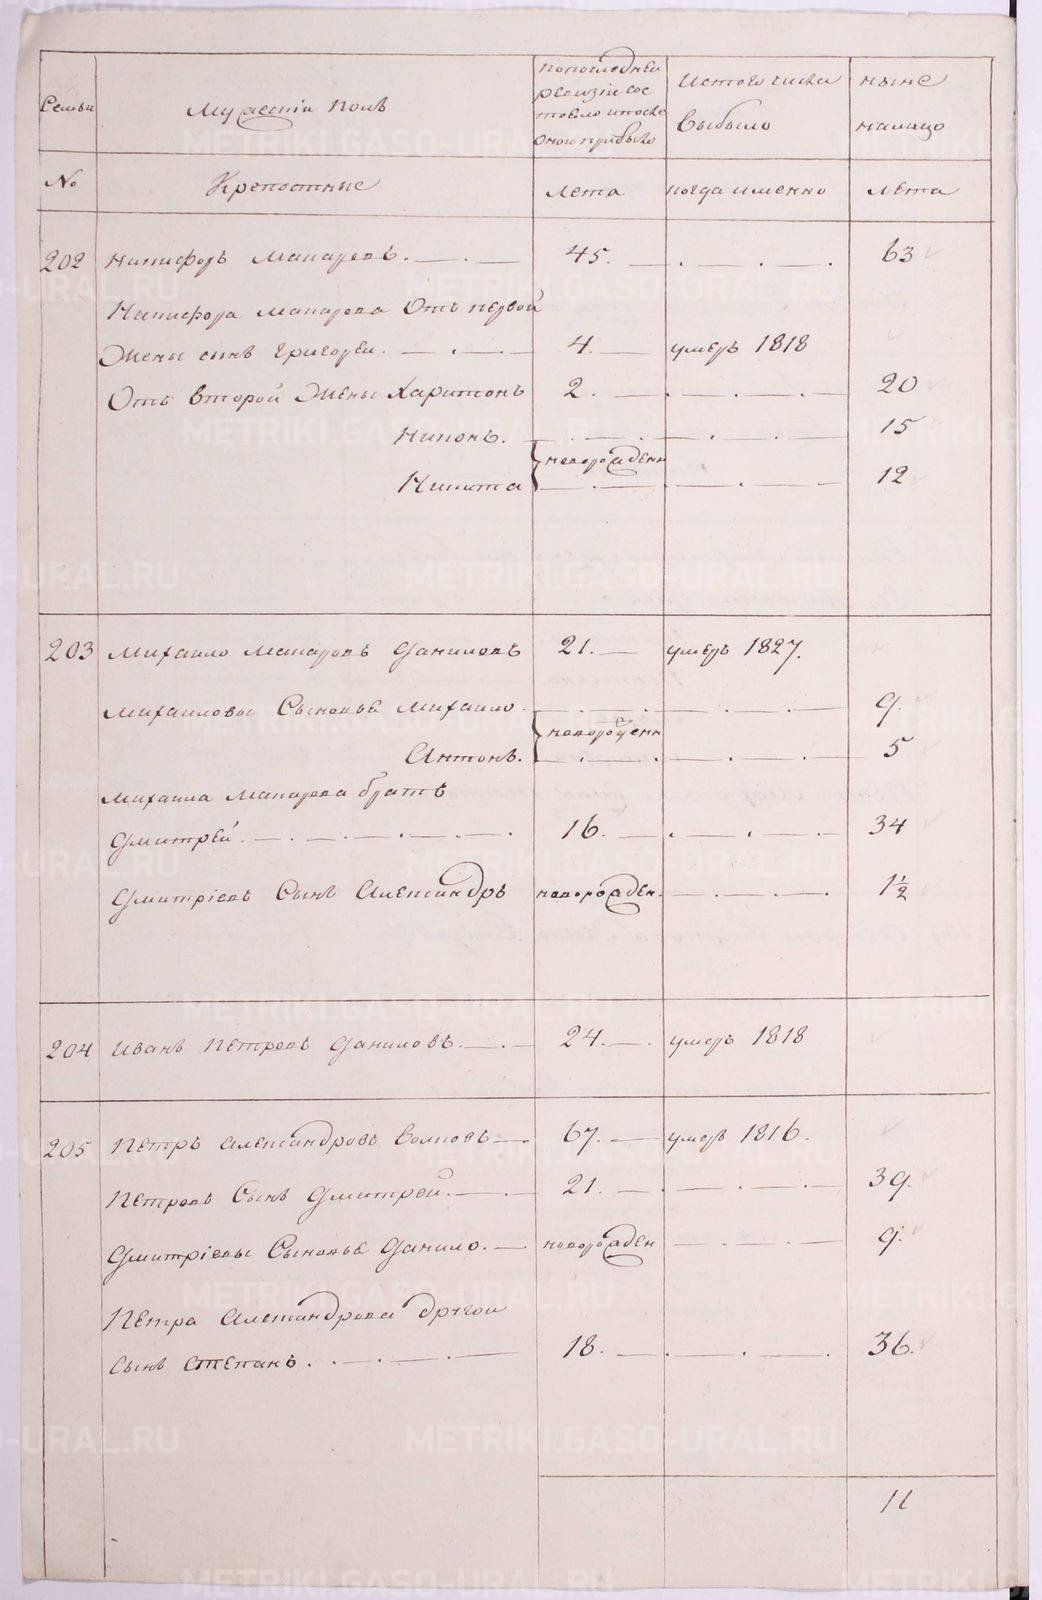 Семьи
Мужескій полъ
По последней
ревизіи сос
тояло и после
оной прибыло
Из того числа
выбыло
ныне
налицо
№
Крепостные
Лета
когда именно
Лета
202 Никифоръ Макаровъ. 45. 63
Никифора Макарова Отъ первой
Жены сынъ Григорей. 4. умеръ 1818
Отъ второй Жены Харитонъ 2. 20
Никонъ. 15
новорожденн
Никита 12
203 Михайло Макаровъ Даниловъ 21. умеръ 1827.
Михайловы Сыновья Михайло. 9.
новорожденн
Антонъ. 5
Михайла Макарова братъ
Дмитрей. 16. 34
Дмитріевъ Сынъ Александръ новорожден. 1½
204 Иванъ Петровъ Даниловъ. 24. умеръ 1818
205 Петръ Александровъ Волковъ 67. умеръ 1816.
Петровъ Сынъ Дмитрей. 21. 39.
Дмитріевы Сыновья Данило. новорожден 9.
Петра Александрова другой
сынъ Степанъ. 18. 36.
11
METRIKI.GASO-URAL.RU